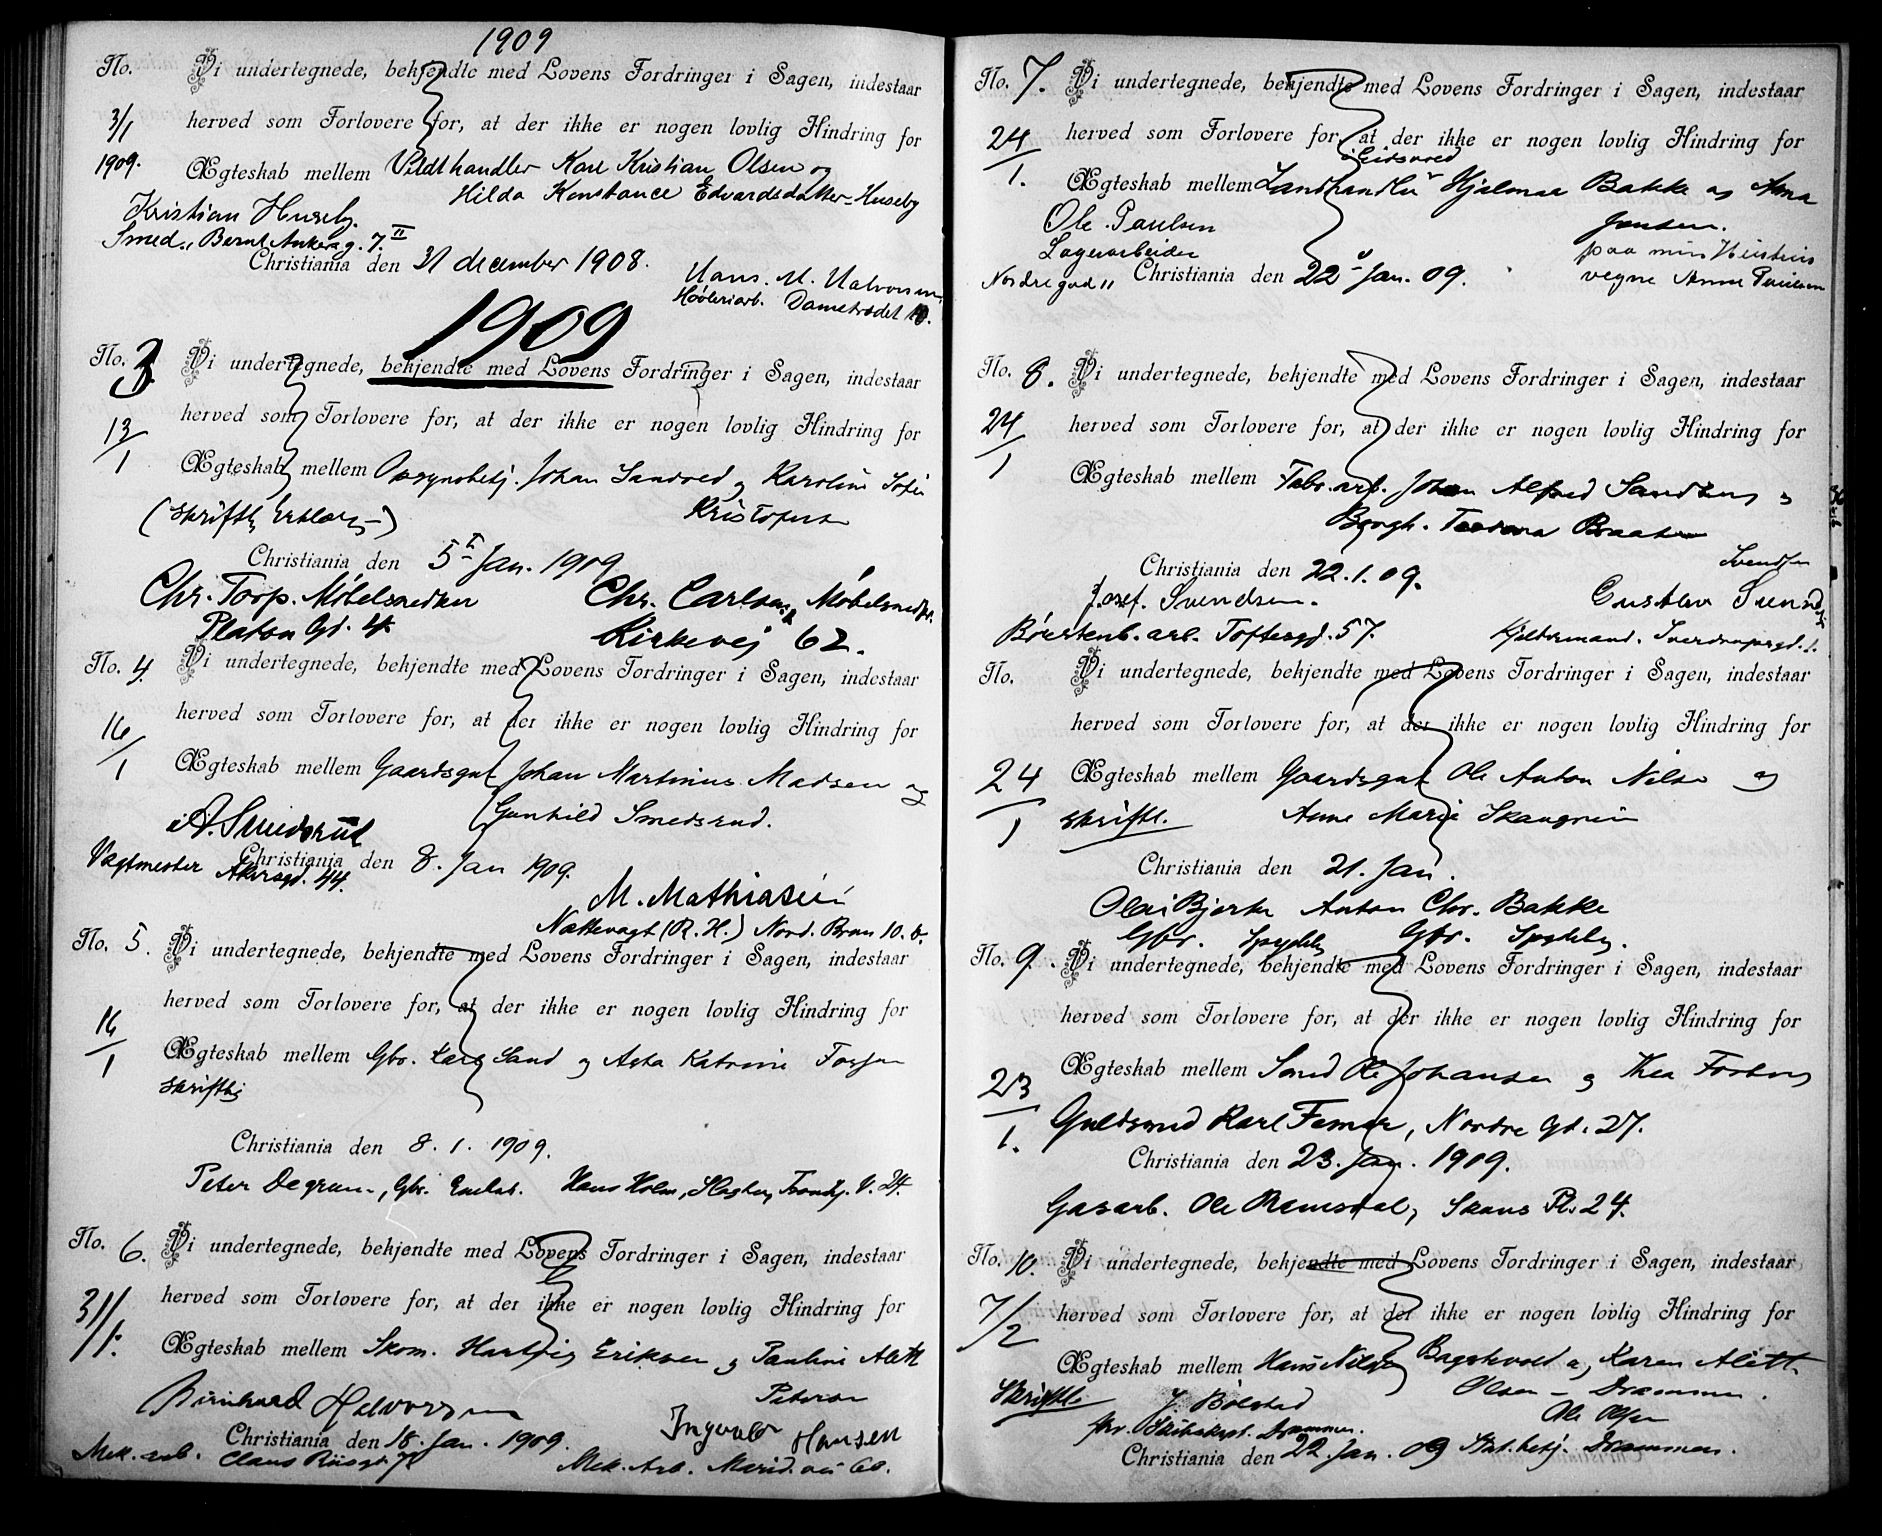 1909
No. Vi undertegnede, bekjendte med Lovens Fordringer i Sagen, indestaar
3/1 herved som Forlovere for, at der ikke er nogen lovlig Hindring for
1909. Ægteskab mellem Vildthandler Karl Kristian Olsen og
Hilda Konstance Edvardsdatter-Huseby
Kristian Huseby.
Smed., Bernt Ankersg. 7. II
Christiania den 31 december 1908.
Hans. M. Halvorsen
Høvleriarb. Damstrædet 10.
1909
No. 3. Vi undertegnede, bekjendte med Lovens Fordringer i Sagen, indestaar
13/1 herved som Forlovere for, at der ikke er nogen lovlig Hindring for
Ægteskab mellem Opsynsbetj. Johan Sandved og Karoline Sofie
(skriftl. Erklær.)
Christiania den 5 Jan. 1909
Chr. Torp. Møbelsnedker Chr. Carlsen, Møbelsnedkr.
Platou Gd. 4. Kirkevej 62.
No. 4. Vi undertegnede, bekjendte med Lovens Fordringer i Sagen, indestaar
16/1 herved som Forlovere for, at der ikke er nogen lovlig Hindring for
Ægteskab mellem Gaardsgut Johan Martinius Madsen og
Gunhild Smedsrud.
A. Smedsrud
Vagtmester Akersgd. 44. Christiania den 8. Jan 1909.
M. Mathiasen
Nattevagt (R. H.) Nord. Bran 10. b.
No. 5. Vi undertegnede, bekjendte med Lovens Fordringer i Sagen, indestaar
16/1 herved som Forlovere for, at der ikke er nogen lovlig Hindring for
Ægteskab mellem Gbr. Karl Sand og Asta Katrine
skriftlig
Christiania den 8. 1. 1909.
Peter Degrum, Gbr. Hans Holm, V. 24.
No. 6. Vi undertegnede, bekjendte med Lovens Fordringer i Sagen, indestaar
31/1. herved som Forlovere for, at der ikke er nogen lovlig Hindring for
Ægteskab mellem Skom. Hartvig Eriksen og Pauline Alette
Petersen
Bernhard Halvorsen
Christiania den 18. Jan. 1909.
Ingvald Hansen
Mek. arb. Claus Riisgt. Mek. Arb. Marid. vei 60.
No. 7. Vi undertegnede, bekjendte med Lovens Fordringer i Sagen, indestaar
24/1. herved som Forlovere for, at der ikke er nogen lovlig Hindring for
i Eidsvold
Ægteskab mellem Landhandler Hjalmar Bakke og Anna
Jensen.
Ole Paulsen
Lagerarbeider paa min Hustrus
Nordregad 11 Christiania den 22 Jan. 09. vegne Anne Paulsen
No. 8. Vi undertegnede, bekjendte med Lovens Fordringer i Sagen, indestaar
24/1 herved som Forlovere for, at der ikke er nogen lovlig Hindring for
Ægteskab mellem Fabr. arb. Johan Alfred Sandberg og
Bergh. Teodora Braaten
Christiania den 22. 1. 09.
Svendsen
Josef. Svendsen. Gustav
Børstenb. arb. Toftesgd. 57. Kjeldermand. Sverdrupsgd. 1.
No. Vi undertegnede, bekjendte med Lovens Fordringer i Sagen, indestaar
herved som Forlovere for, at der ikke er nogen lovlig Hindring for
24/1 Ægteskab mellem Gaardsgut Ole Anton Nilsen og
skriftl. Anne Marie
Christiania den 21. Jan.
Olai Bjerke Anton Chr. Bakke
Gbr. Spydeb. Gbr. Spydeb.
No. 9. Vi undertegnede, bekjendte med Lovens Fordringer i Sagen, indestaar
herved som Forlovere for, at der ikke er nogen lovlig Hindring for
23/1. Ægteskab mellem Smed Ole Johansen og Thea Forberg
Guldsmed Karl Femar, Nordre Gd. 27.
Christiania den 23. Jan. 1909.
Gasarb. Ole Ramsdal, Skaus Pl. 24.
No. 10. Vi undertegnede, bekjendte med Lovens Fordringer i Sagen, indestaar
7/2 herved som Forlovere for, at der ikke er nogen lovlig Hindring for
Ægteskab mellem Hans Nilsen Bagshvold og Karen Alette
Skriftl. Olsen - Drammen.
J. Bølstad Ole Olsen
fhv. Skibskapt. Drammen.
Christiania den 22. Jan. 09 Stat. betj. Drammen.